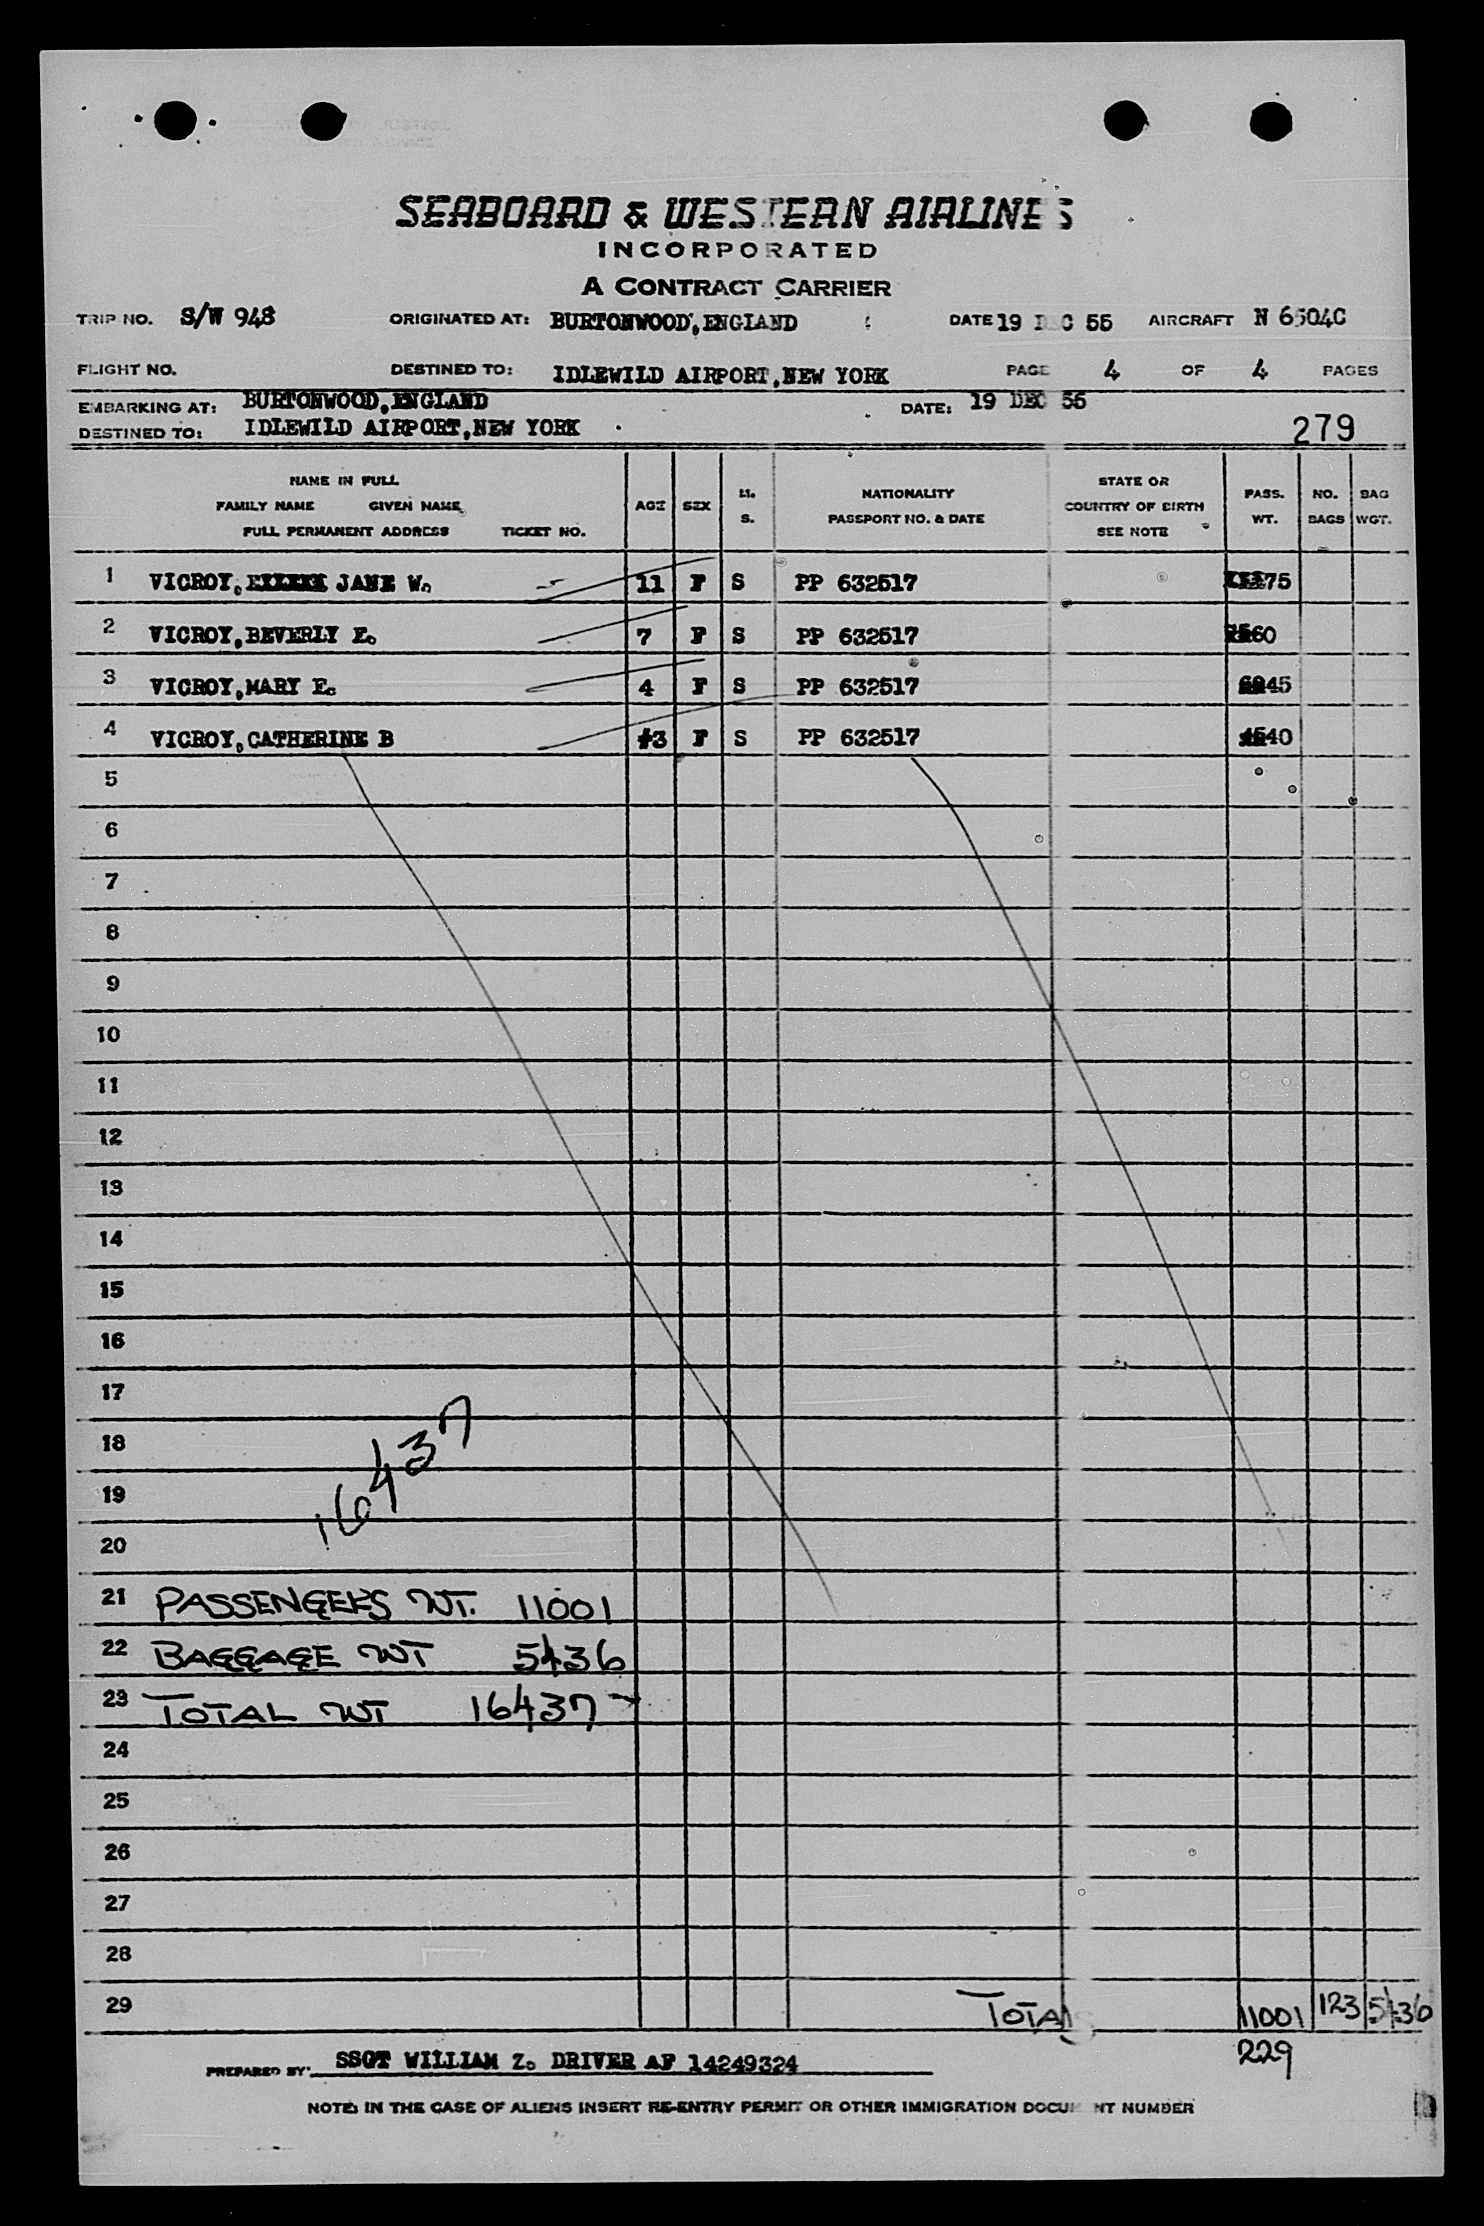 SEABOARD & WESTERN AIRLINES
INCORPORATED
A CONTRACT CARRIER
TRIP NO. S/W 948 ORIGINATED AT: BURTONWOOD, ENGLAND DATE 19 DEC 55 AIRCRAFT N 6504C
FLIGHT NO. DESTINED TO: IDLEWILD AIRPORT, NEW YORK PAGE 4 OF 4 PAGES
EMBARKING AT: BURTONWOOD, ENGLAND DATE: 19 DEC 55
DESTINED TO: IDLEWILD AIRPORT, NEW YORK 279
NAME IN FULL
FAMILY NAME GIVEN NAME
FULL PERMANENT ADDRESS TICKET NO.
AGE SEX M. S.
NATIONALITY
PASSPORT NO. & DATE
STATE OR
COUNTRY OF BIRTH
SEE NOTE
PASS. WT.
NO. BAGS
BAG WGT.
1 VICROY, JANE W. 11 F S PP 632517 75
2 VICROY, BEVERLY E. 7 F S PP 632517 60
3 VICROY, MARY E. 4 F S PP 632517 45
4 VICROY, CATHERINE B 3 F S PP 632517 40
5
6
7
8
9
10
11
12
13
14
15
16
17
18
16437
19
20
21 PASSENGERS WT. 11001
22 BAGGAGE WT 5436
23 TOTAL WT 16437
24
25
26
27
28
29 TOTALS 11001 123 5436
229
PREPARED BY: SSGT WILLIAM Z. DRIVER AF 14249324
NOTE: IN THE CASE OF ALIENS INSERT RE-ENTRY PERMIT OR OTHER IMMIGRATION DOCUMENT NUMBER